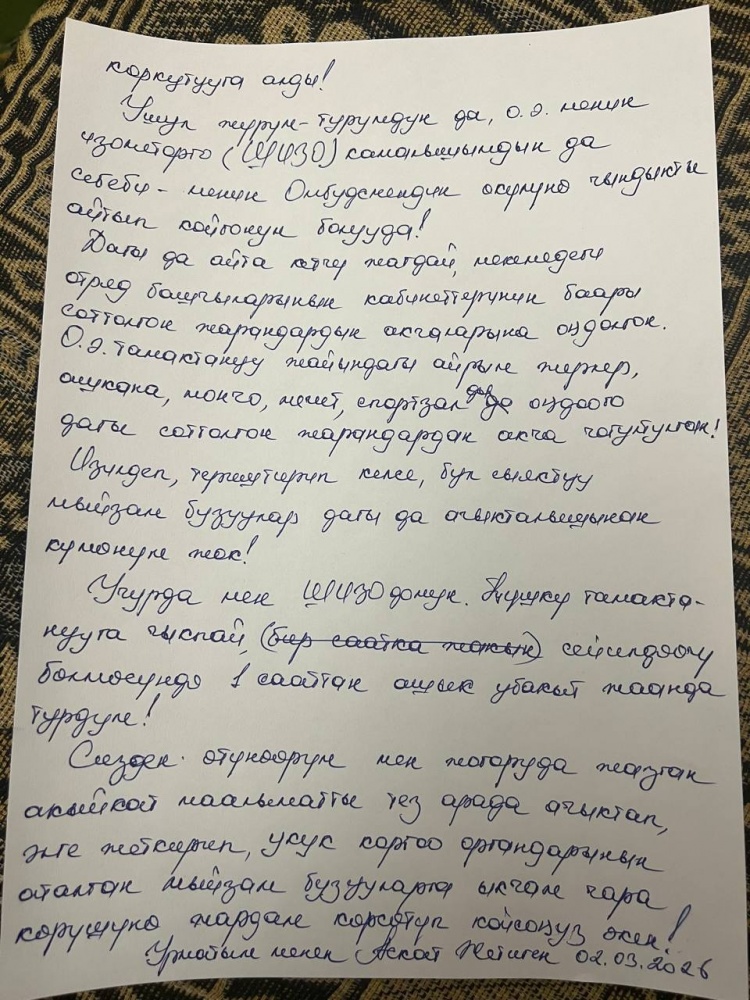 коркутууга алды!
Ушул жүрүм-турумдун да, о.э. менин
изометарго (ШИЗО) камалышымдын да
себеби - менин Омбудсмендин өкүлүнө чындыкты
айтып койгонун болууда!
Дагы да айта кетчү жагдай, мекемедеги
отряд башчыларынын кабинеттеринин баары
соттолгон жарандардын акчаларына оңдолгон.
О.э. тамактануу жайындагы айрым жерлер,
ашкана, мончо, мечит, спортзалды оңдоого
дагы соттолгон жарандардан акча чогултулган!
Изилдеп, териштирип келсе, бул сыяктуу
мыйзам бузуулар дагы да ачыкталышынан
күмөнүм жок!
Учурда мен ШИЗОдомун. Түшкү тамакта-
нууга чыкпай, (бир саатка жакын) сейилдөөчү
бөлмөсүндө 1 сааттан ашык убакыт жаанда
турдум!
Сизден өтүнөөрүм мен жогоруда жазган
акыйкат маалыматты тез арада ачыктап,
элге жеткирип, укук коргоо органдарынын
аталган мыйзам бузууларга ыкчам чара
көрүшүнө жардам көрсөтүп койсоңуз экен!
Урматым менен Аскат Жетиген 02.03.2026